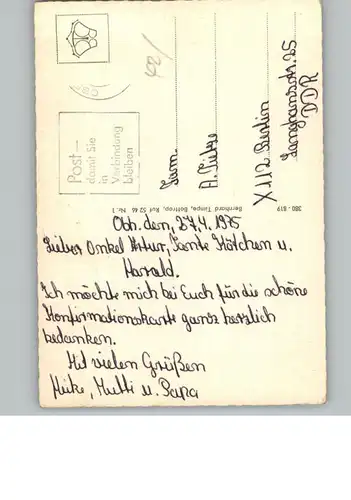 Obh. den, 27.4. 1975
Lieber Onkel Artur, Tante Kätchen u.
Harald.
Ich möchte mich bei Euch für die schöne
Konfirmationskarte ganz herzlich
bedanken.
Mit vielen Grüßen
Heike, Mutti u. Papa
Post -
damit Sie
in
Verbindung
bleiben
Fam.
A.
X 112 Berlin
Langhansstr. 25
DDR
380 - 819
Bernhard Timpe, Bottrop, Ruf 52 46 Nr. 1